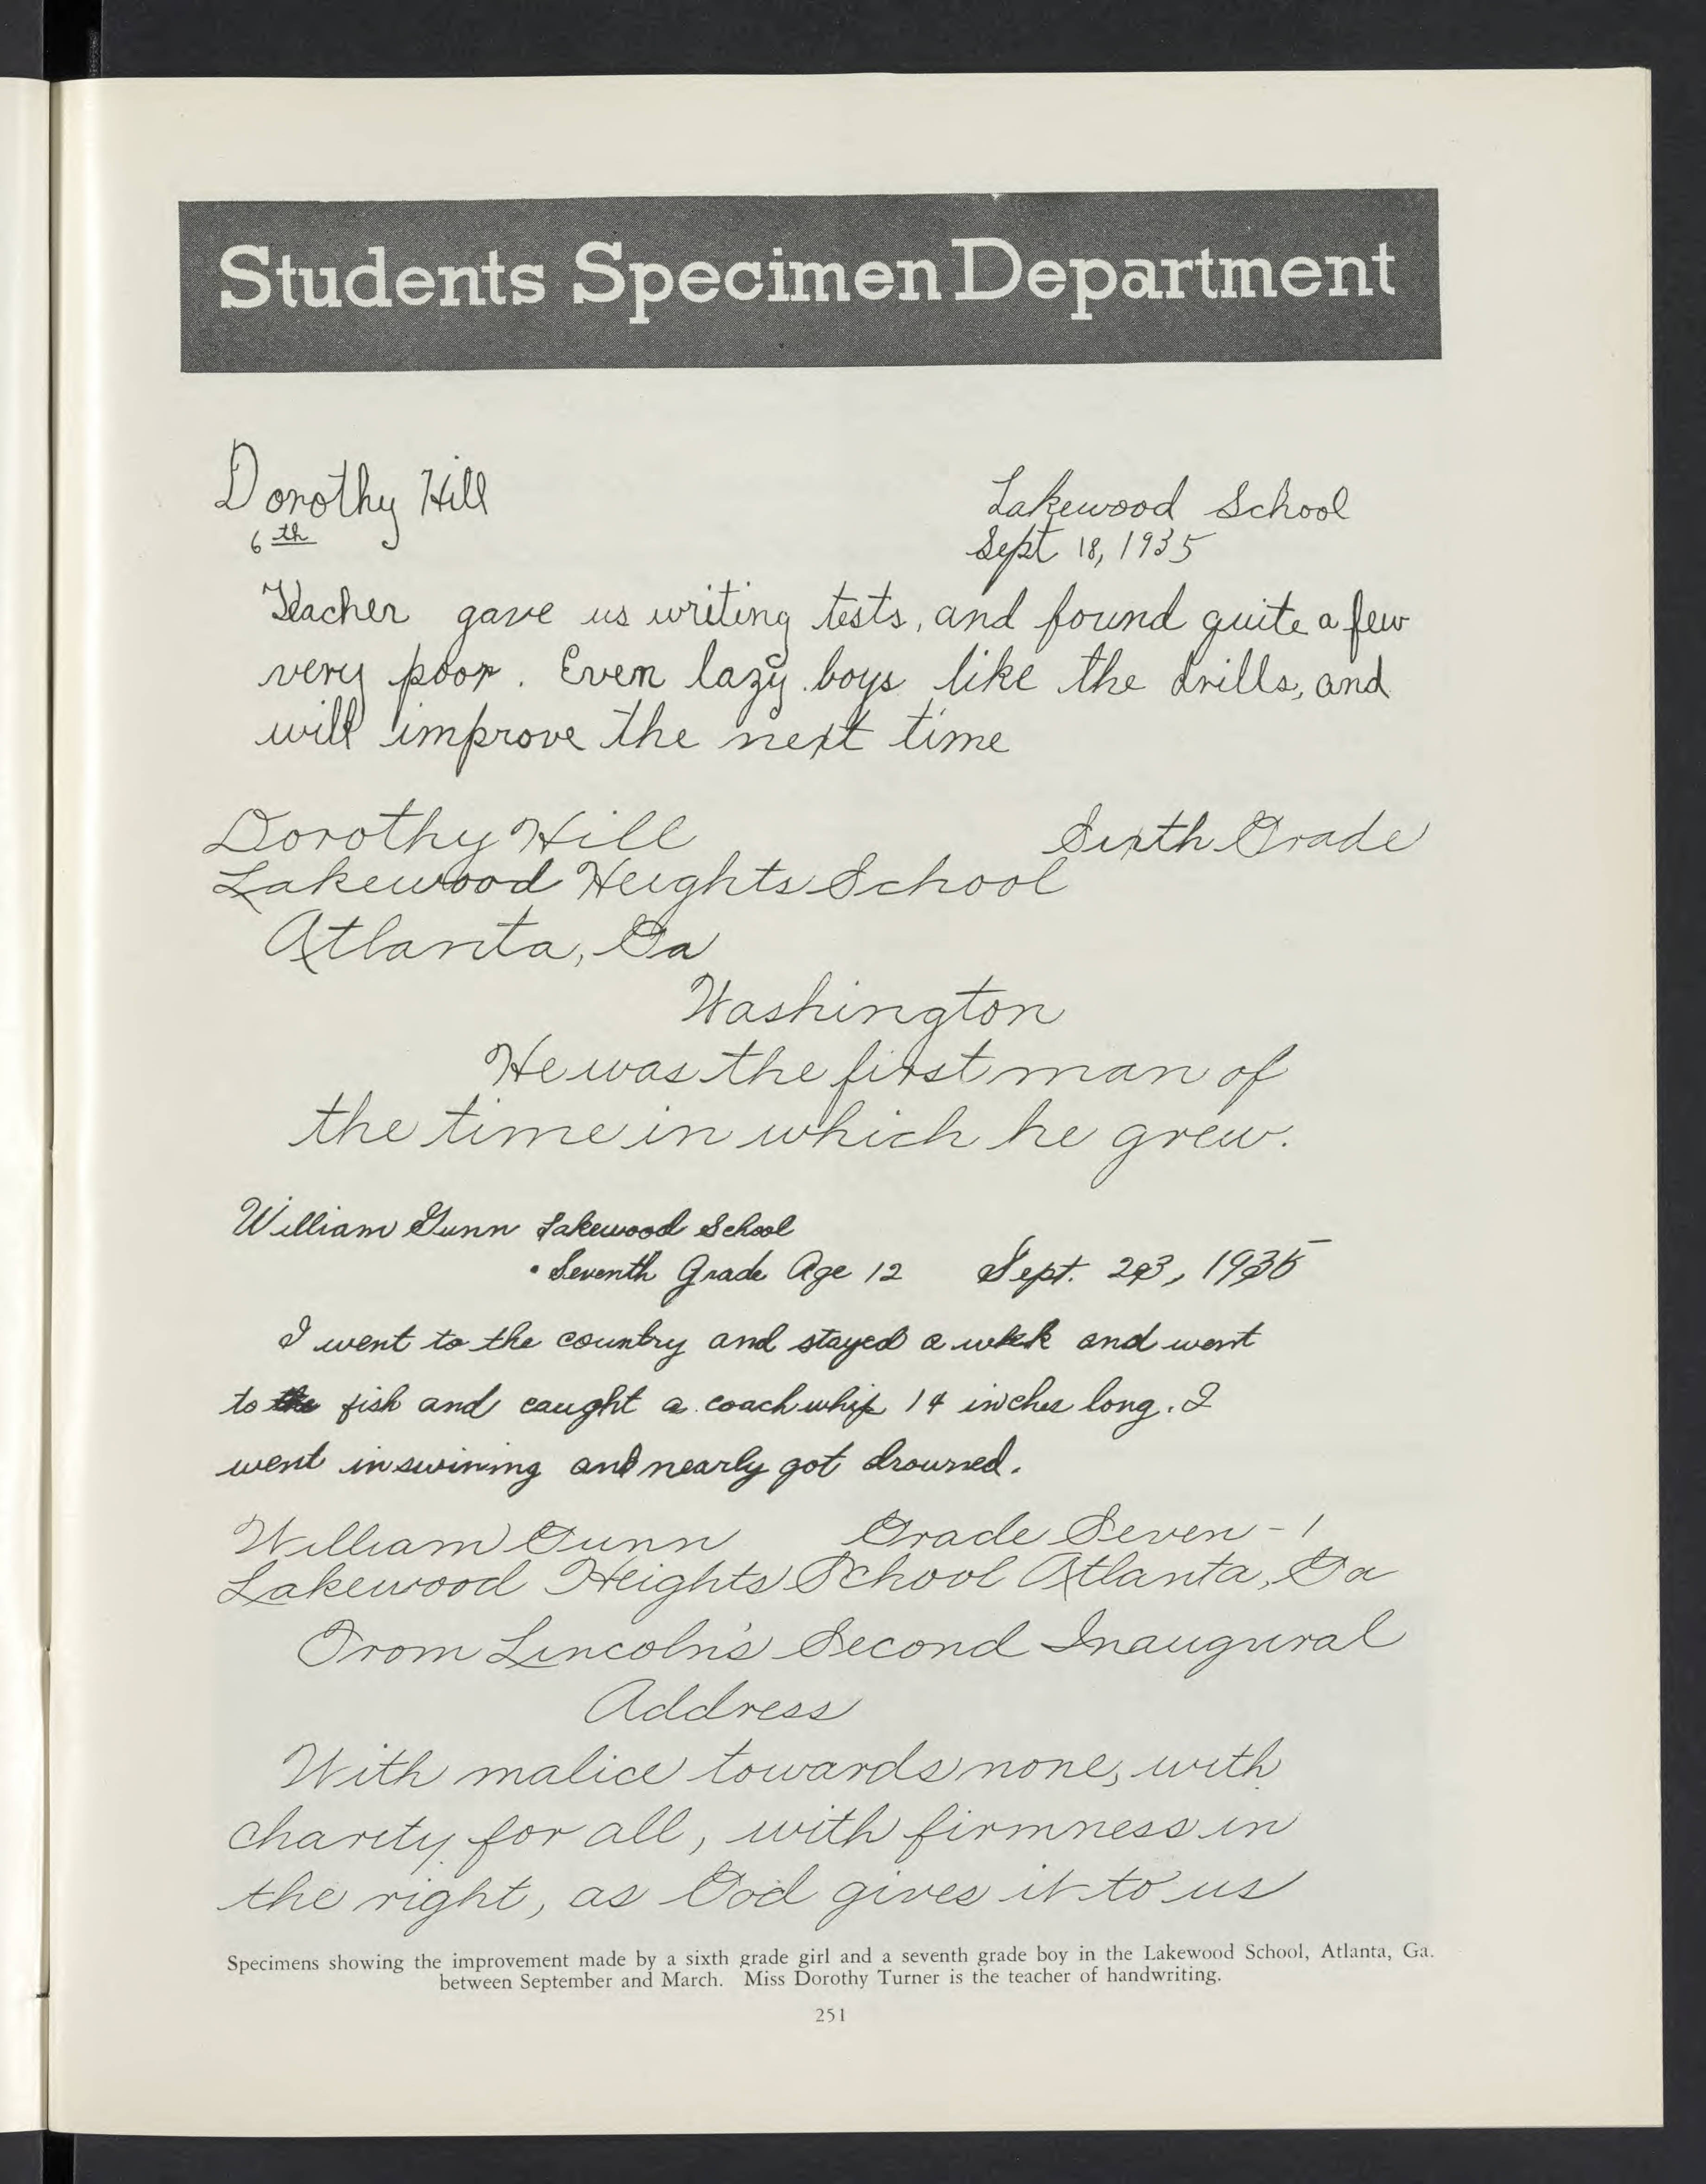 Students Specimen Department
Dorothy Hill
6th
Lakewood School
Sept 18, 1935
Teacher gave us writing tests, and found quite a few
very poor. Even lazy boys like the drills, and
will improve the next time
Dorothy Hill Sixth Grade
Lakewood Heights School
Atlanta, Ga
Washington
He was the first man of
the time in which he grew.
William Gunn Lakewood School
Seventh Grade Age 12 Sept. 23, 1935
I went to the country and stayed a week and went
to fish and caught a coach whip 14 inches long. I
went in swining and nearly got drowned.
William Gunn Grade Seven - 1
Lakewood Heights School Atlanta, Ga
From Lincoln's Second Inaugural
Address
With malice towards none, with
charity for all, with firmness in
the right, as God gives it to us
Specimens showing the improvement made by a sixth grade girl and a seventh grade boy in the Lakewood School, Atlanta, Ga.
between September and March. Miss Dorothy Turner is the teacher of handwriting.
251